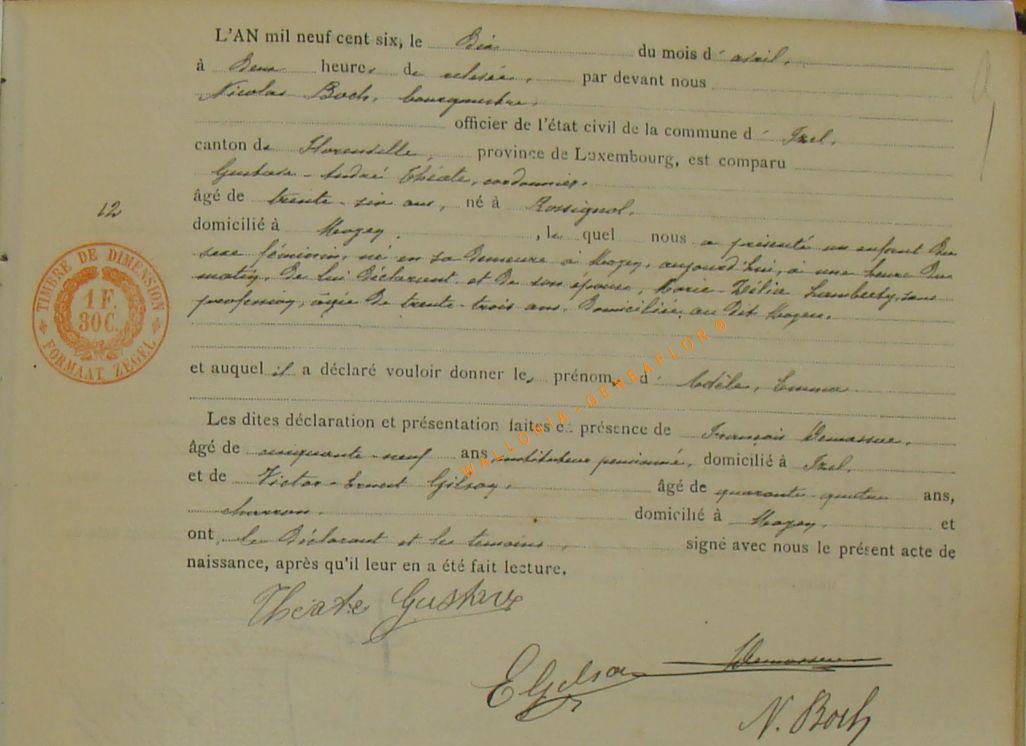 L'AN mil neuf cent six, le Dix du mois d' avril,
à Deux heures de relevée, par devant nous
Nicolas Boch, bourgmestre,
officier de l'état civil de la commune d' Izel,
canton de Florenville, province de Luxembourg, est comparu
Gustave-André Théate, cordonnier,
âgé de trente-six ans, né à Rossignol,
12
domicilié à Moyen, le quel nous a présenté un enfant du
sexe féminin, né en sa demeure à Moyen, aujourd'hui, à une heure du
matin, de lui déclarant et de son épouse, Marie-Zélie Lamberty, sans
profession, âgée de trente-trois ans, domiciliée au dit Moyen.
TIMBRE DE DIMENSION
1 F.
30 C.
FORMAAT ZEGEL
et auquel il a déclaré vouloir donner les prénoms d' Adèle, Emma
WALLONIA-GENEAFLOR®
Les dites déclaration et présentation faites en présence de François Demasure,
âgé de cinquante-neuf ans, instituteur pensionné, domicilié à Izel,
et de Victor-Ernest Gilson, âgé de quarante-quatre ans,
charron, domicilié à Moyen, et
ont, le déclarant et les témoins, signé avec nous le présent acte de
naissance, après qu'il leur en a été fait lecture.
Théate Gustave
E Gilson
N. Boch